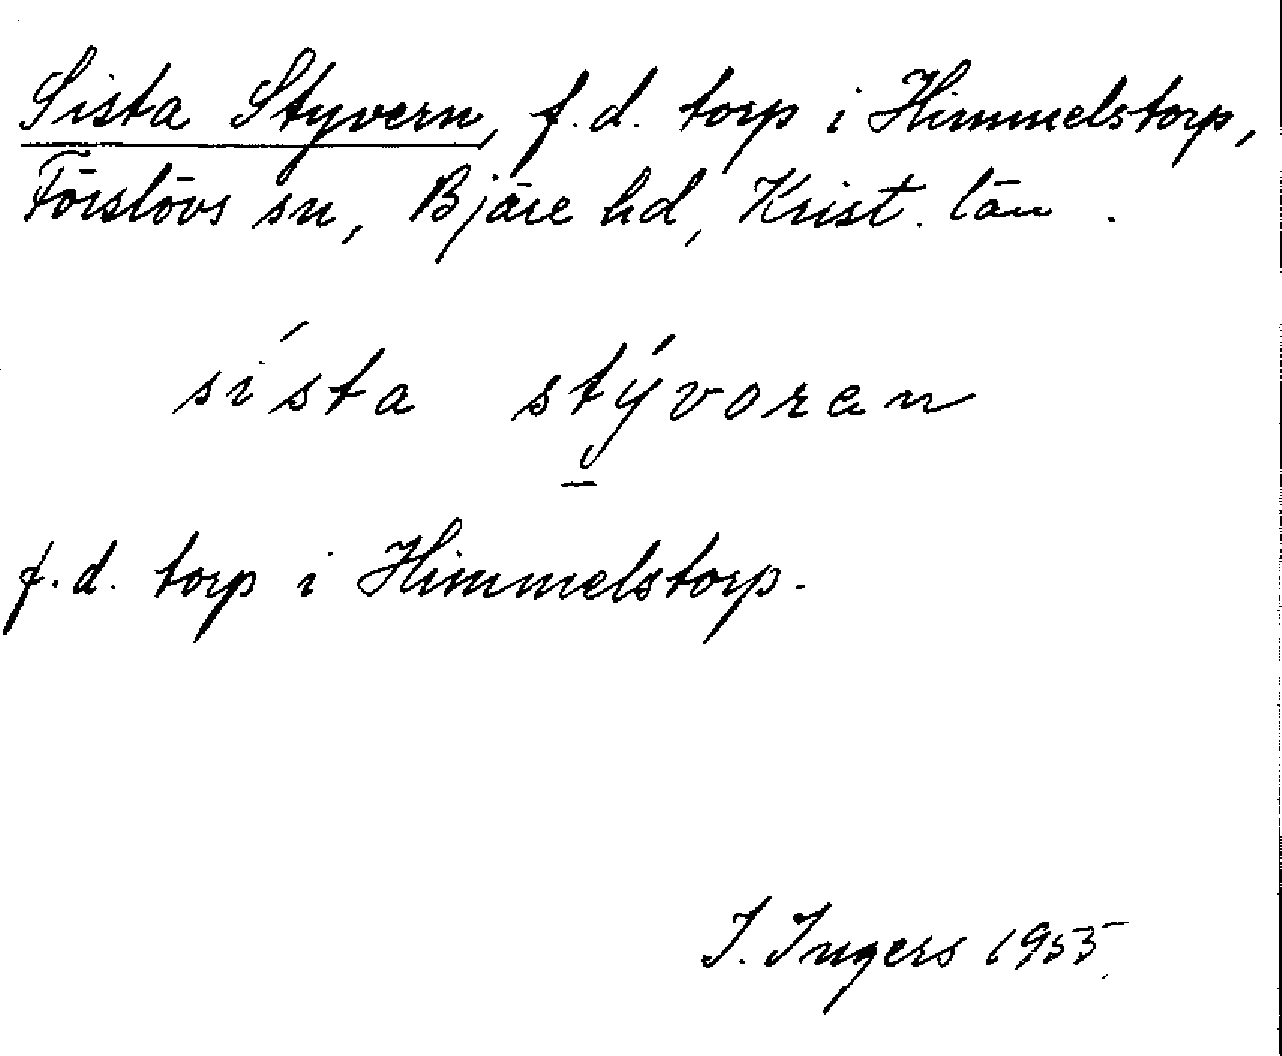 Sista Styvern, f.d. torp i Himmelstorp,
Förslövs sn, Bjäre hd, Krist. län.
sísta stývoran
f.d. torp i Himmelstorp.
I. Ingers 1955.